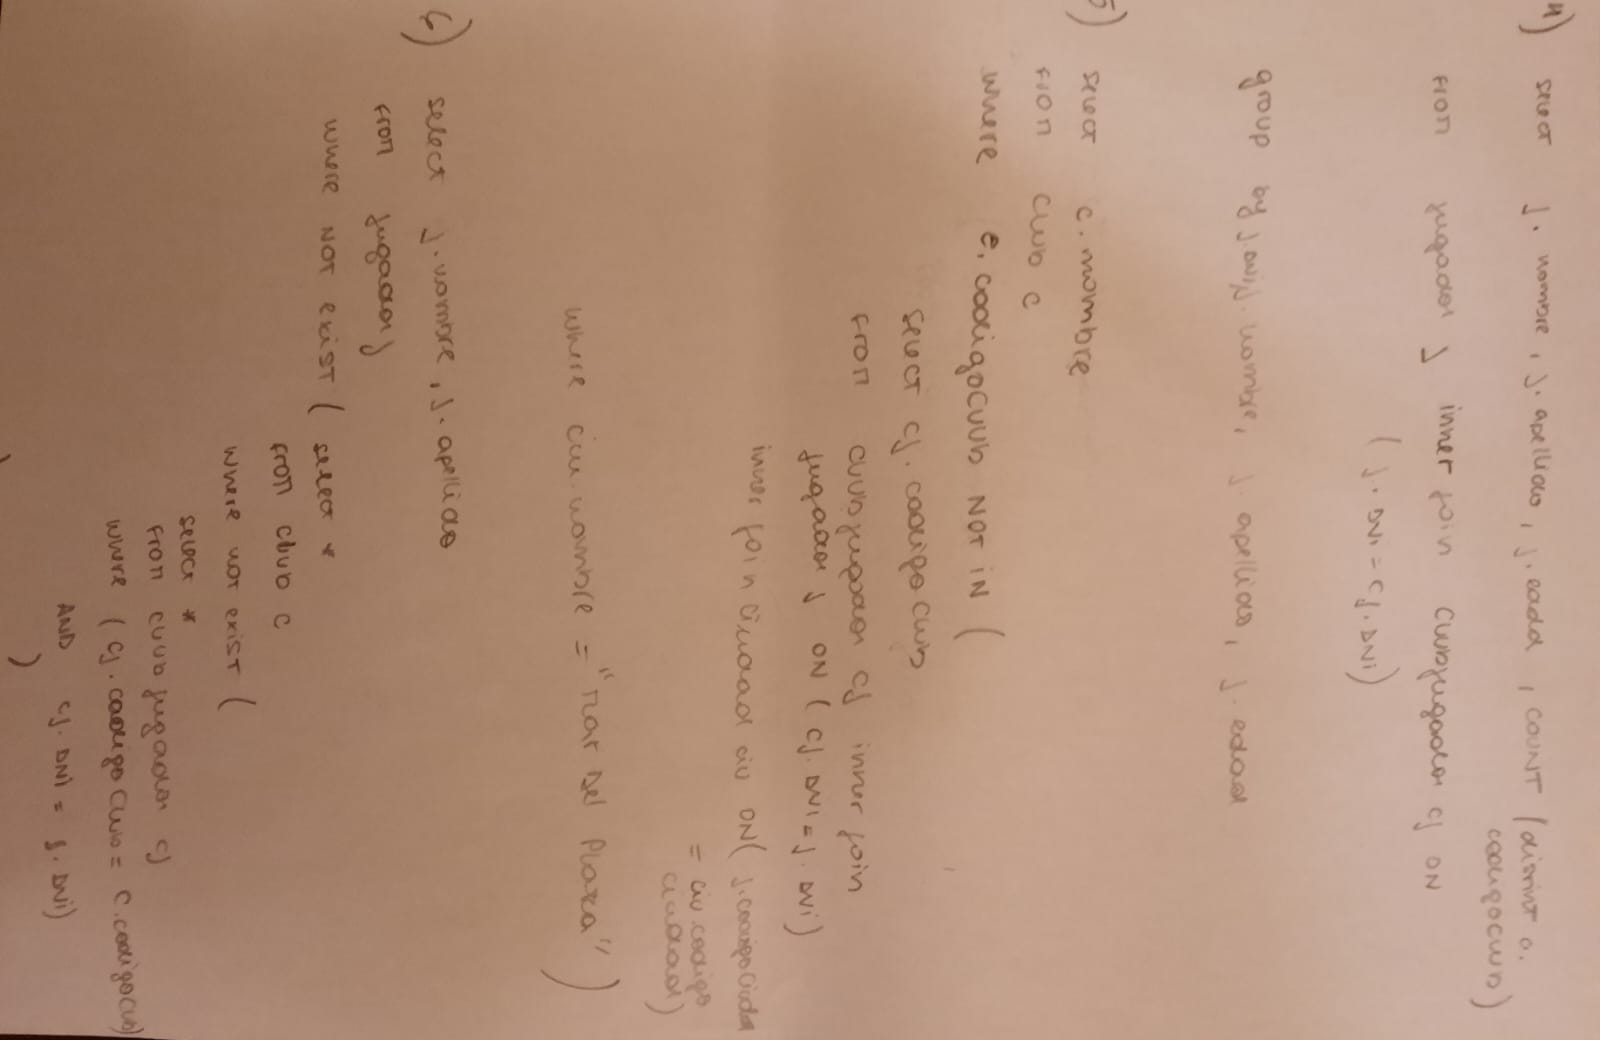 4) select j. nombre, j. apellido, j. edad, COUNT (distinct c.
codigoclub)
from jugador j inner join clubjugador cj ON
(j. DNI = cj. DNI)
group by j. DNI, j. nombre, j. apellido, j. edad
5) select c. nombre
from club c
where c. codigoclub NOT IN (
select cj. codigoclub
from clubjugador cj inner join
jugador j ON (cj. DNI = j. DNI)
inner join ciudad ciu ON (j. codigociudad
= ciu. codigo
ciudad)
where ciu. nombre = "Mar Del Plata")
6) select j. nombre, j. apellido
from jugador j
where NOT exist (select *
from club c
where not exist (
select *
from club jugador cj
where (cj. codigoclub = c. codigoclub)
AND cj. DNI = j. DNI)
)
)